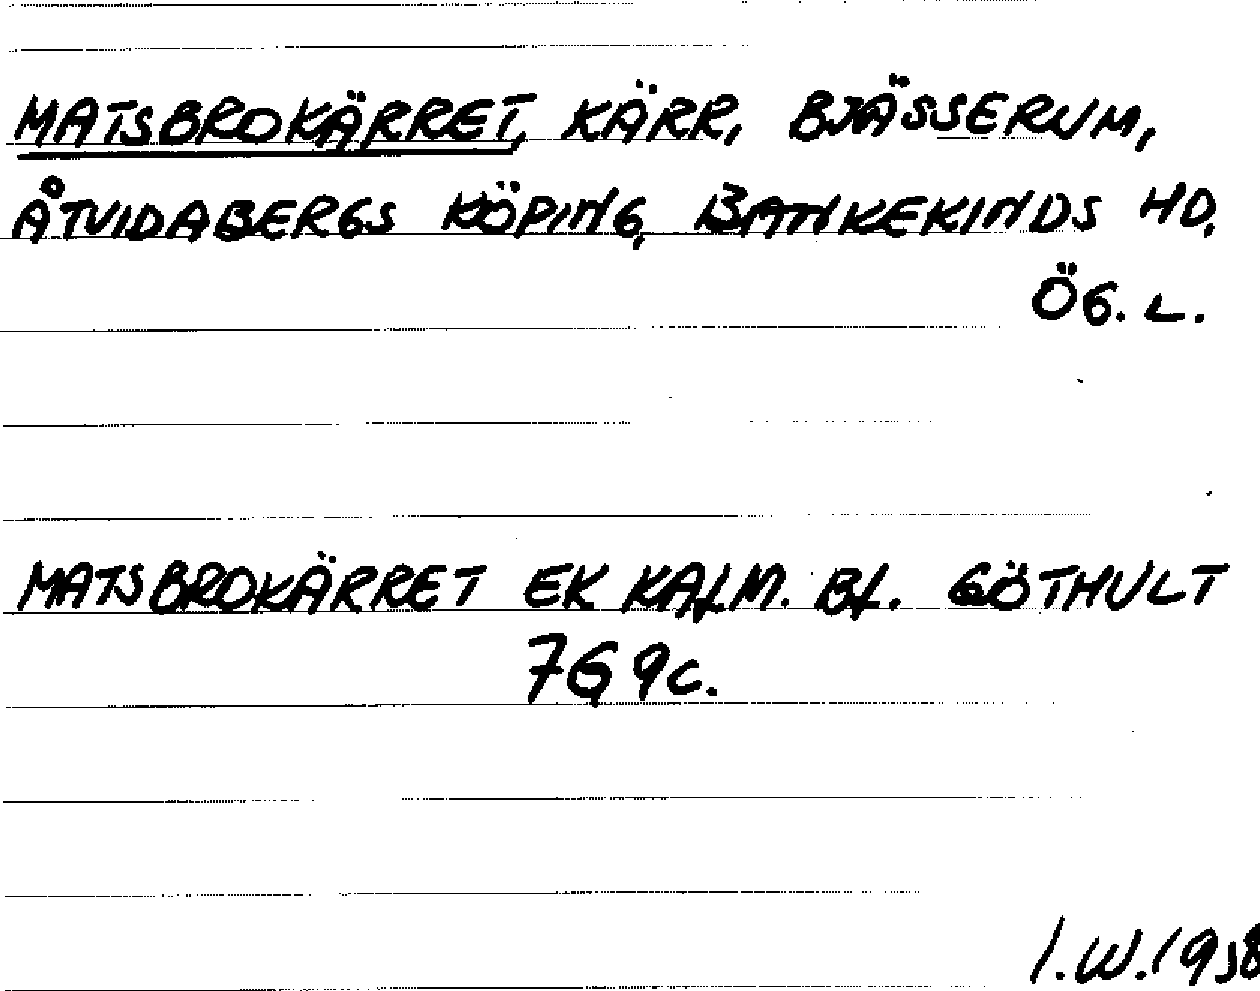 MATSBROKÄRRET, KÄRR, BJÄSSERUM,
ÅTVIDABERGS KÖPING, BANKEKINDS HD,
ÖG. L.
MATSBROKÄRRET EK KALM. BL. GÖTHULT
7G 9c.
I.W.1958